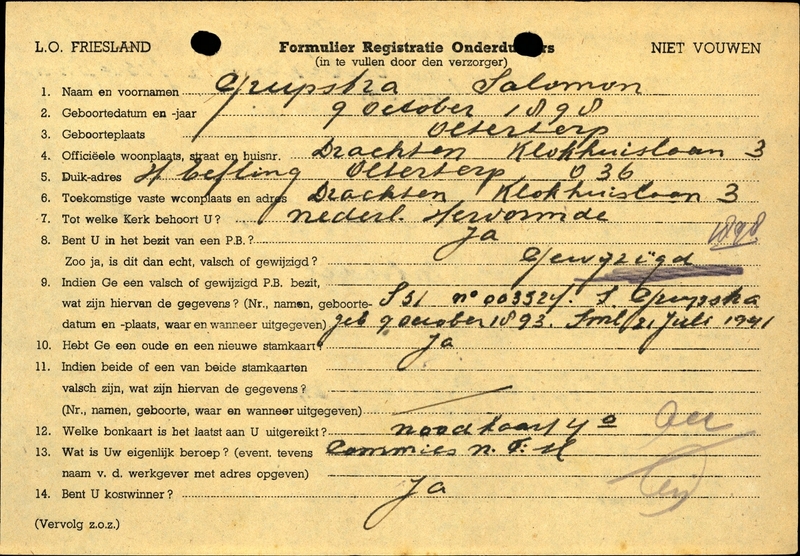 L.O. FRIESLAND Formulier Registratie Onderdu ers NIET VOUWEN
(in te vullen door den verzorger)
1. Naam en voornamen Grupstra Salomon
2. Geboortedatum en -jaar 9 october 1898
3. Geboorteplaats Olterterp
4. Officiëele woonplaats, straat en huisnr. Drachten Klokhuislaan 3
5. Duik-adres H Olterterp 036
6. Toekomstige vaste woonplaats en adres Drachten Klokhuislaan 3
7. Tot welke Kerk behoort U? nederl. Hervormde
8. Bent U in het bezit van een P.B.? Ja 1898
Zoo ja, is dit dan echt, valsch of gewijzigd? Gewyzigd
9. Indien Ge een valsch of gewijzigd P.B. bezit,
wat zijn hiervan de gegevens? (Nr., namen, geboorte- S 51 no 003527. S. Grupstra
datum en -plaats, waar en wanneer uitgegeven) geb 9 october 1893. Sml 21 Juli 1941
10. Hebt Ge een oude en een nieuwe stamkaart? Ja
11. Indien beide of een van beide stamkaarten
valsch zijn, wat zijn hiervan de gegevens?
(Nr., namen, geboorte, waar en wanneer uitgegeven)
12. Welke bonkaart is het laatst aan U uitgereikt? noodkaart 4o
13. Wat is Uw eigenlijk beroep? (event. tevens Commies n.T.H
naam v. d. werkgever met adres opgeven)
14. Bent U kostwinner? Ja
(Vervolg z.o.z.)